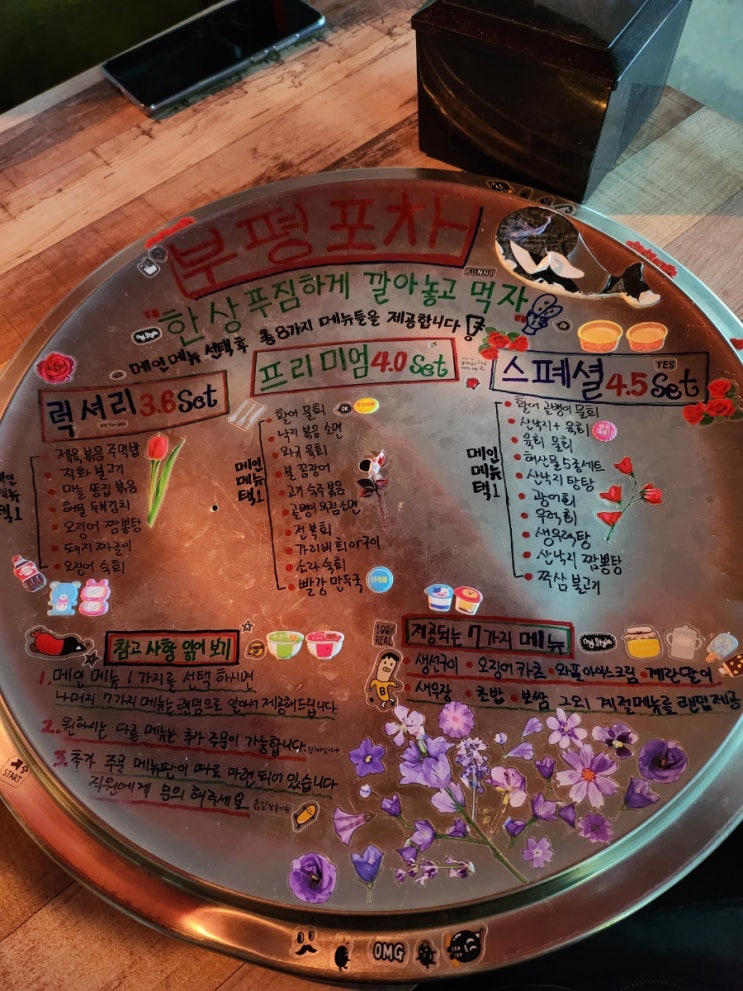 부평포차
FUNNY
"한상푸짐하게 깔아놓고 먹자"
My Style
메인메뉴 선택 후 총 8가지 메뉴들을 제공합니다
럭셔리 3.6 Set
메뉴
택1
제육볶음 주먹밥
직화 불고기
마늘 똥집 볶음
해물 두부김치
오징어 짬뽕탕
돼지 짜글이
오징어 숙회
프리미엄 4.0 Set
메인
메뉴
택1
활어 물회
낙지 볶음 소면
육회
불 꼼장어
고기 숙주볶음
골뱅이 무침 소면
전복회
가리비 회 or 구이
소라 숙회
빨강 만두국
신제품
스페셜 4.5 Set
YES
메인
메뉴
택1
활어 골뱅이 물회
산낙지 + 육회
육회 물회
해산물 5종세트
산낙지 탕탕
광어회
우럭회
생우럭탕
산낙지 짬뽕탕
쭈삼 불고기
참고 사항 읽어 보기
1. 메인 메뉴 1가지를 선택 하시면
나머지 7가지 메뉴는 랜덤으로 알아서 제공해드립니다.
2. 원하시는 다른 메뉴는 추가 주문이 가능합니다.
3. 추가 주문 메뉴판이 따로 마련 되어 있습니다
직원에게 문의 해주세요
100%
REAL
B
제공되는 7가지 메뉴
My Style
생선구이 • 오징어 카츠 • 와플 아이스크림 • 계란말이
새우장 • 초밥 • 보쌈 그외 계절메뉴를 랜덤제공
START
OMG